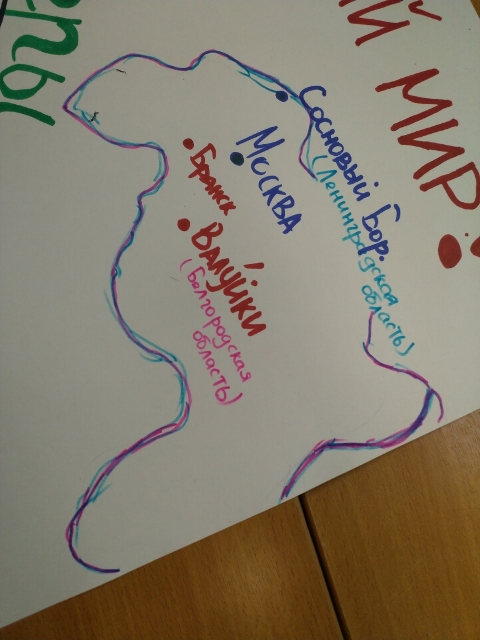 ЕРЫ
ИЙ МИР!
Сосновый Бор.
(Ленинградская
область)
Москва
Брянск
Валуйки
(Белгородская
область)